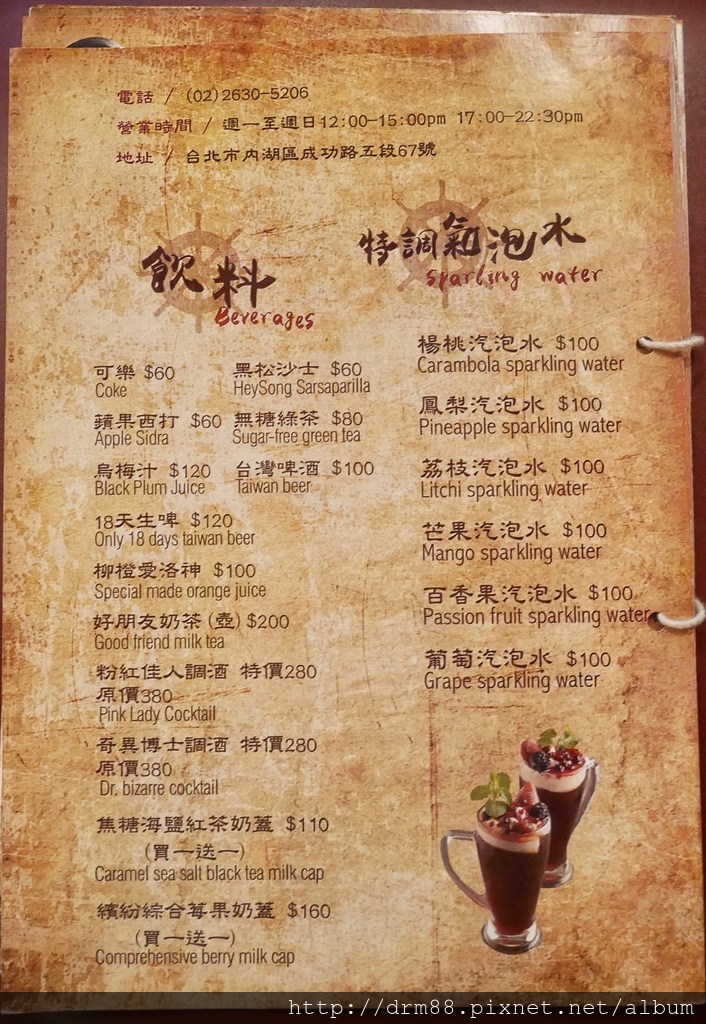 電話 / (02)2630-5206
營業時間 / 週一至週日12:00-15:00pm 17:00-22:30pm
地址 / 台北市內湖區成功路五段67號
飲料
Beverages
可樂 $60
Coke
黑松沙士 $60
HeySong Sarsaparilla
蘋果西打 $60
Apple Sidra
無糖綠茶 $80
Sugar-free green tea
烏梅汁 $120
Black Plum Juice
台灣啤酒 $100
Taiwan beer
18天生啤 $120
Only 18 days taiwan beer
柳橙愛洛神 $100
Special made orange juice
好朋友奶茶 (壺) $200
Good friend milk tea
粉紅佳人調酒 特價280
原價380
Pink Lady Cocktail
奇異博士調酒 特價280
原價380
Dr. bizarre cocktail
焦糖海鹽紅茶奶蓋 $110
(買一送一)
Caramel sea salt black tea milk cap
繽紛綜合莓果奶蓋 $160
(買一送一)
Comprehensive berry milk cap
特調氣泡水
Sparling water
楊桃汽泡水 $100
Carambola sparkling water
鳳梨汽泡水 $100
Pineapple sparkling water
荔枝汽泡水 $100
Litchi sparkling water
芒果汽泡水 $100
Mango sparkling water
百香果汽泡水 $100
Passion fruit sparkling water
葡萄汽泡水 $100
Grape sparkling water
http://drm88.pixnet.net/album